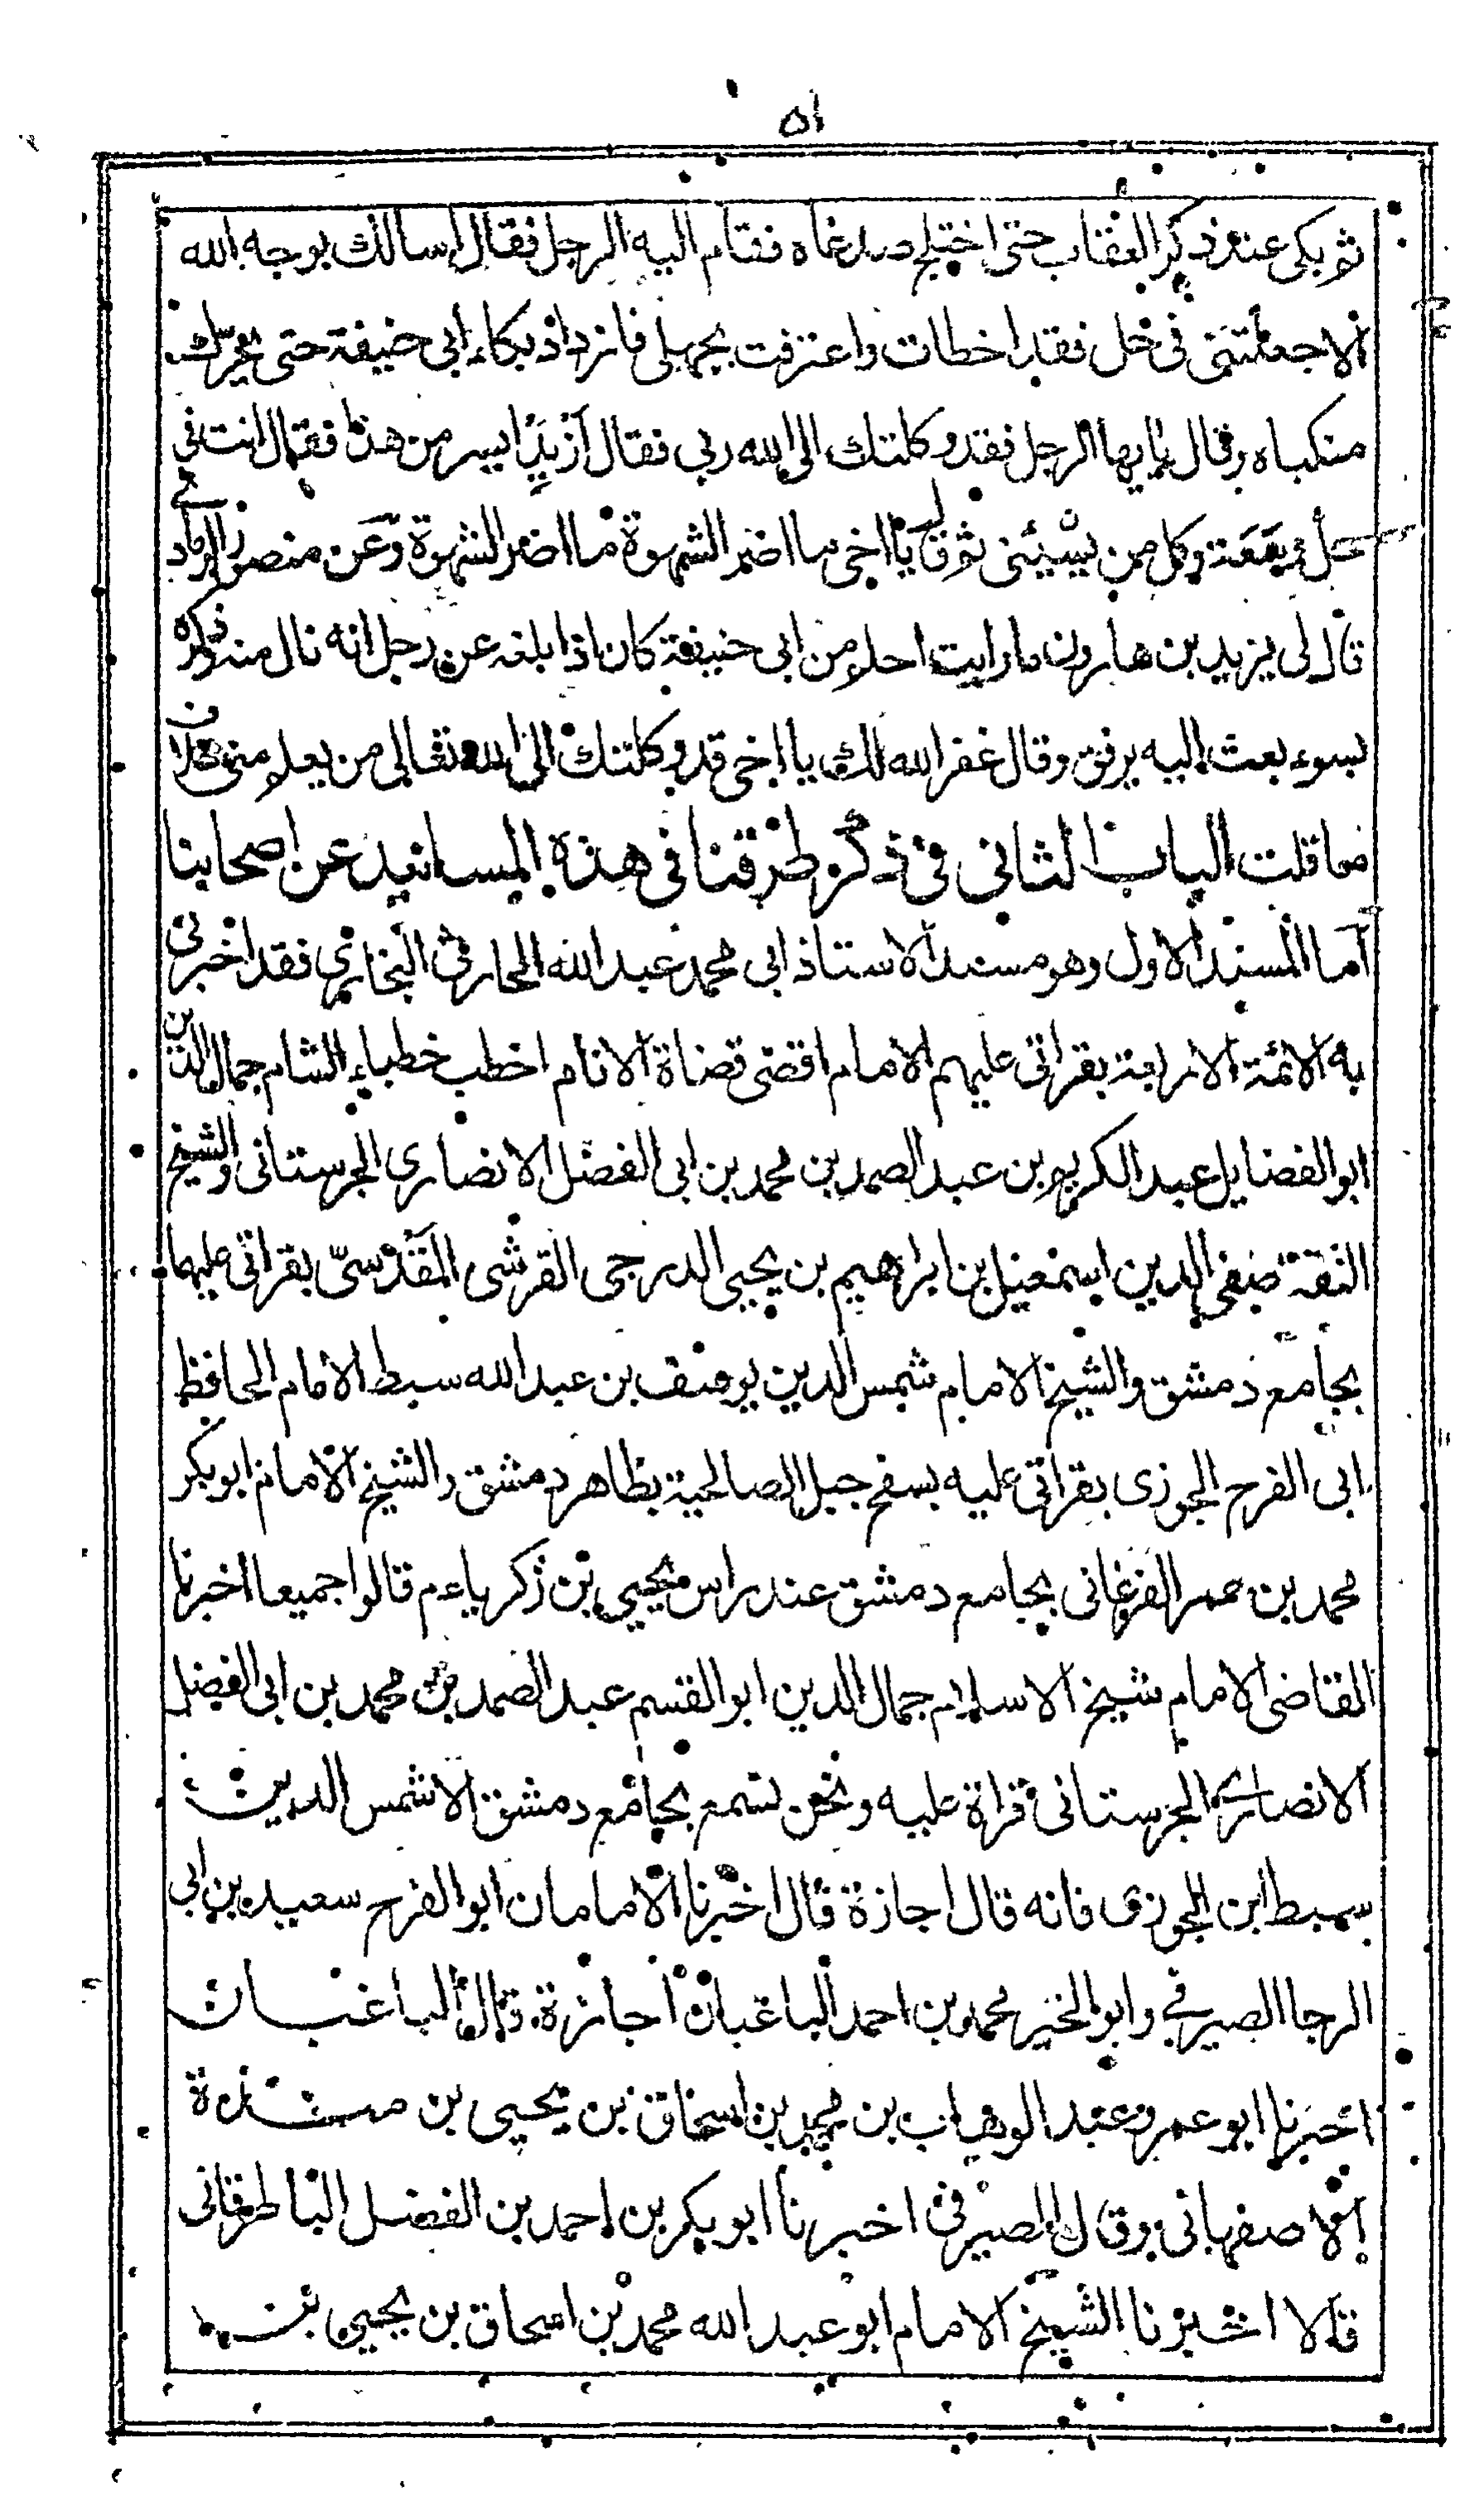 ٥١
ثم بكى عند ذكر العقاب حتى اختلج صدغاه فقام اليه الرجل فقال اسالك بوجه الله
الا جعلتنى فى حل فقد اخطات واعترفت بجهلى فازداد بكاء ابى حنيفة حتى تحرك
منكباه وقال يا ايها الرجل فقد وكلتك الى الله ربى فقال اريد ايسر من هذا فقال انت فى
حل وسعة وكل من يسبنى ثم قال يا اخى ما اضر الشهوة ما اضر الشهوة وعن منصور
قال لى يزيد بن هارون ما رايت احلم من ابى حنيفة كان اذا بلغه عن رجل انه نال منه وذكره
بسوء بعث اليه برفق وقال غفر الله لك يا اخى قد وكلتك الى الله تعالى من يعلم منى خلاف
ما قلت الباب الثانى فى ذكر طرقنا فى هذه المسانيد عن اصحابنا
اما المسند الاول وهو مسند الاستاذ ابى محمد عبد الله الحارثى البخارى فقد اخبرنى
به الائمة الاربعة بقراتى عليهم الامام اقضى قضاة الانام اخطب خطباء الشام جمال الدين
ابو الفضايل عبد الكريم بن عبد الصمد بن محمد بن ابى الفضل الانصارى الجرستانى والشيخ
الثقة صفى الدين اسمعيل بن ابراهيم بن يحيى الدرجى القرشى المقدسى بقراتى عليهما
بجامع دمشق والشيخ الامام شمس الدين يوسف بن عبد الله سبط الامام الحافظ
ابى الفرج الجوزى بقراتى عليه بسفح جبل الصالحية بظاهر دمشق والشيخ الامام ابو بكر
محمد بن عمر الفرغانى بجامع دمشق عند راس يحيى بن زكرياء م قالوا جميعا اخبرنا
القاضى الامام شيخ الاسلام جمال الدين ابو القسم عبد الصمد بن محمد بن ابى الفضل
الانصارى الجرستانى قراة عليه ونحن نسمع بجامع دمشق الا شمس الدين
سبط ابن الجوزى فانه قال اجازة قال اخبرنا الامامان ابو الفرج سعيد بن ابى
الرجا الصيرفى وابو الخير محمد بن احمد الباغبان اجازة قال الباغبان
اخبرنا ابو عمرو عبد الوهاب بن محمد بن اسحاق بن يحيى بن مندة
الاصفهانى وقال الصيرفى اخبرنا ابو بكر بن احمد بن الفضل الباطرقانى
قالا اخبرنا الشيخ الامام ابو عبد الله محمد بن اسحاق بن يحيى بن